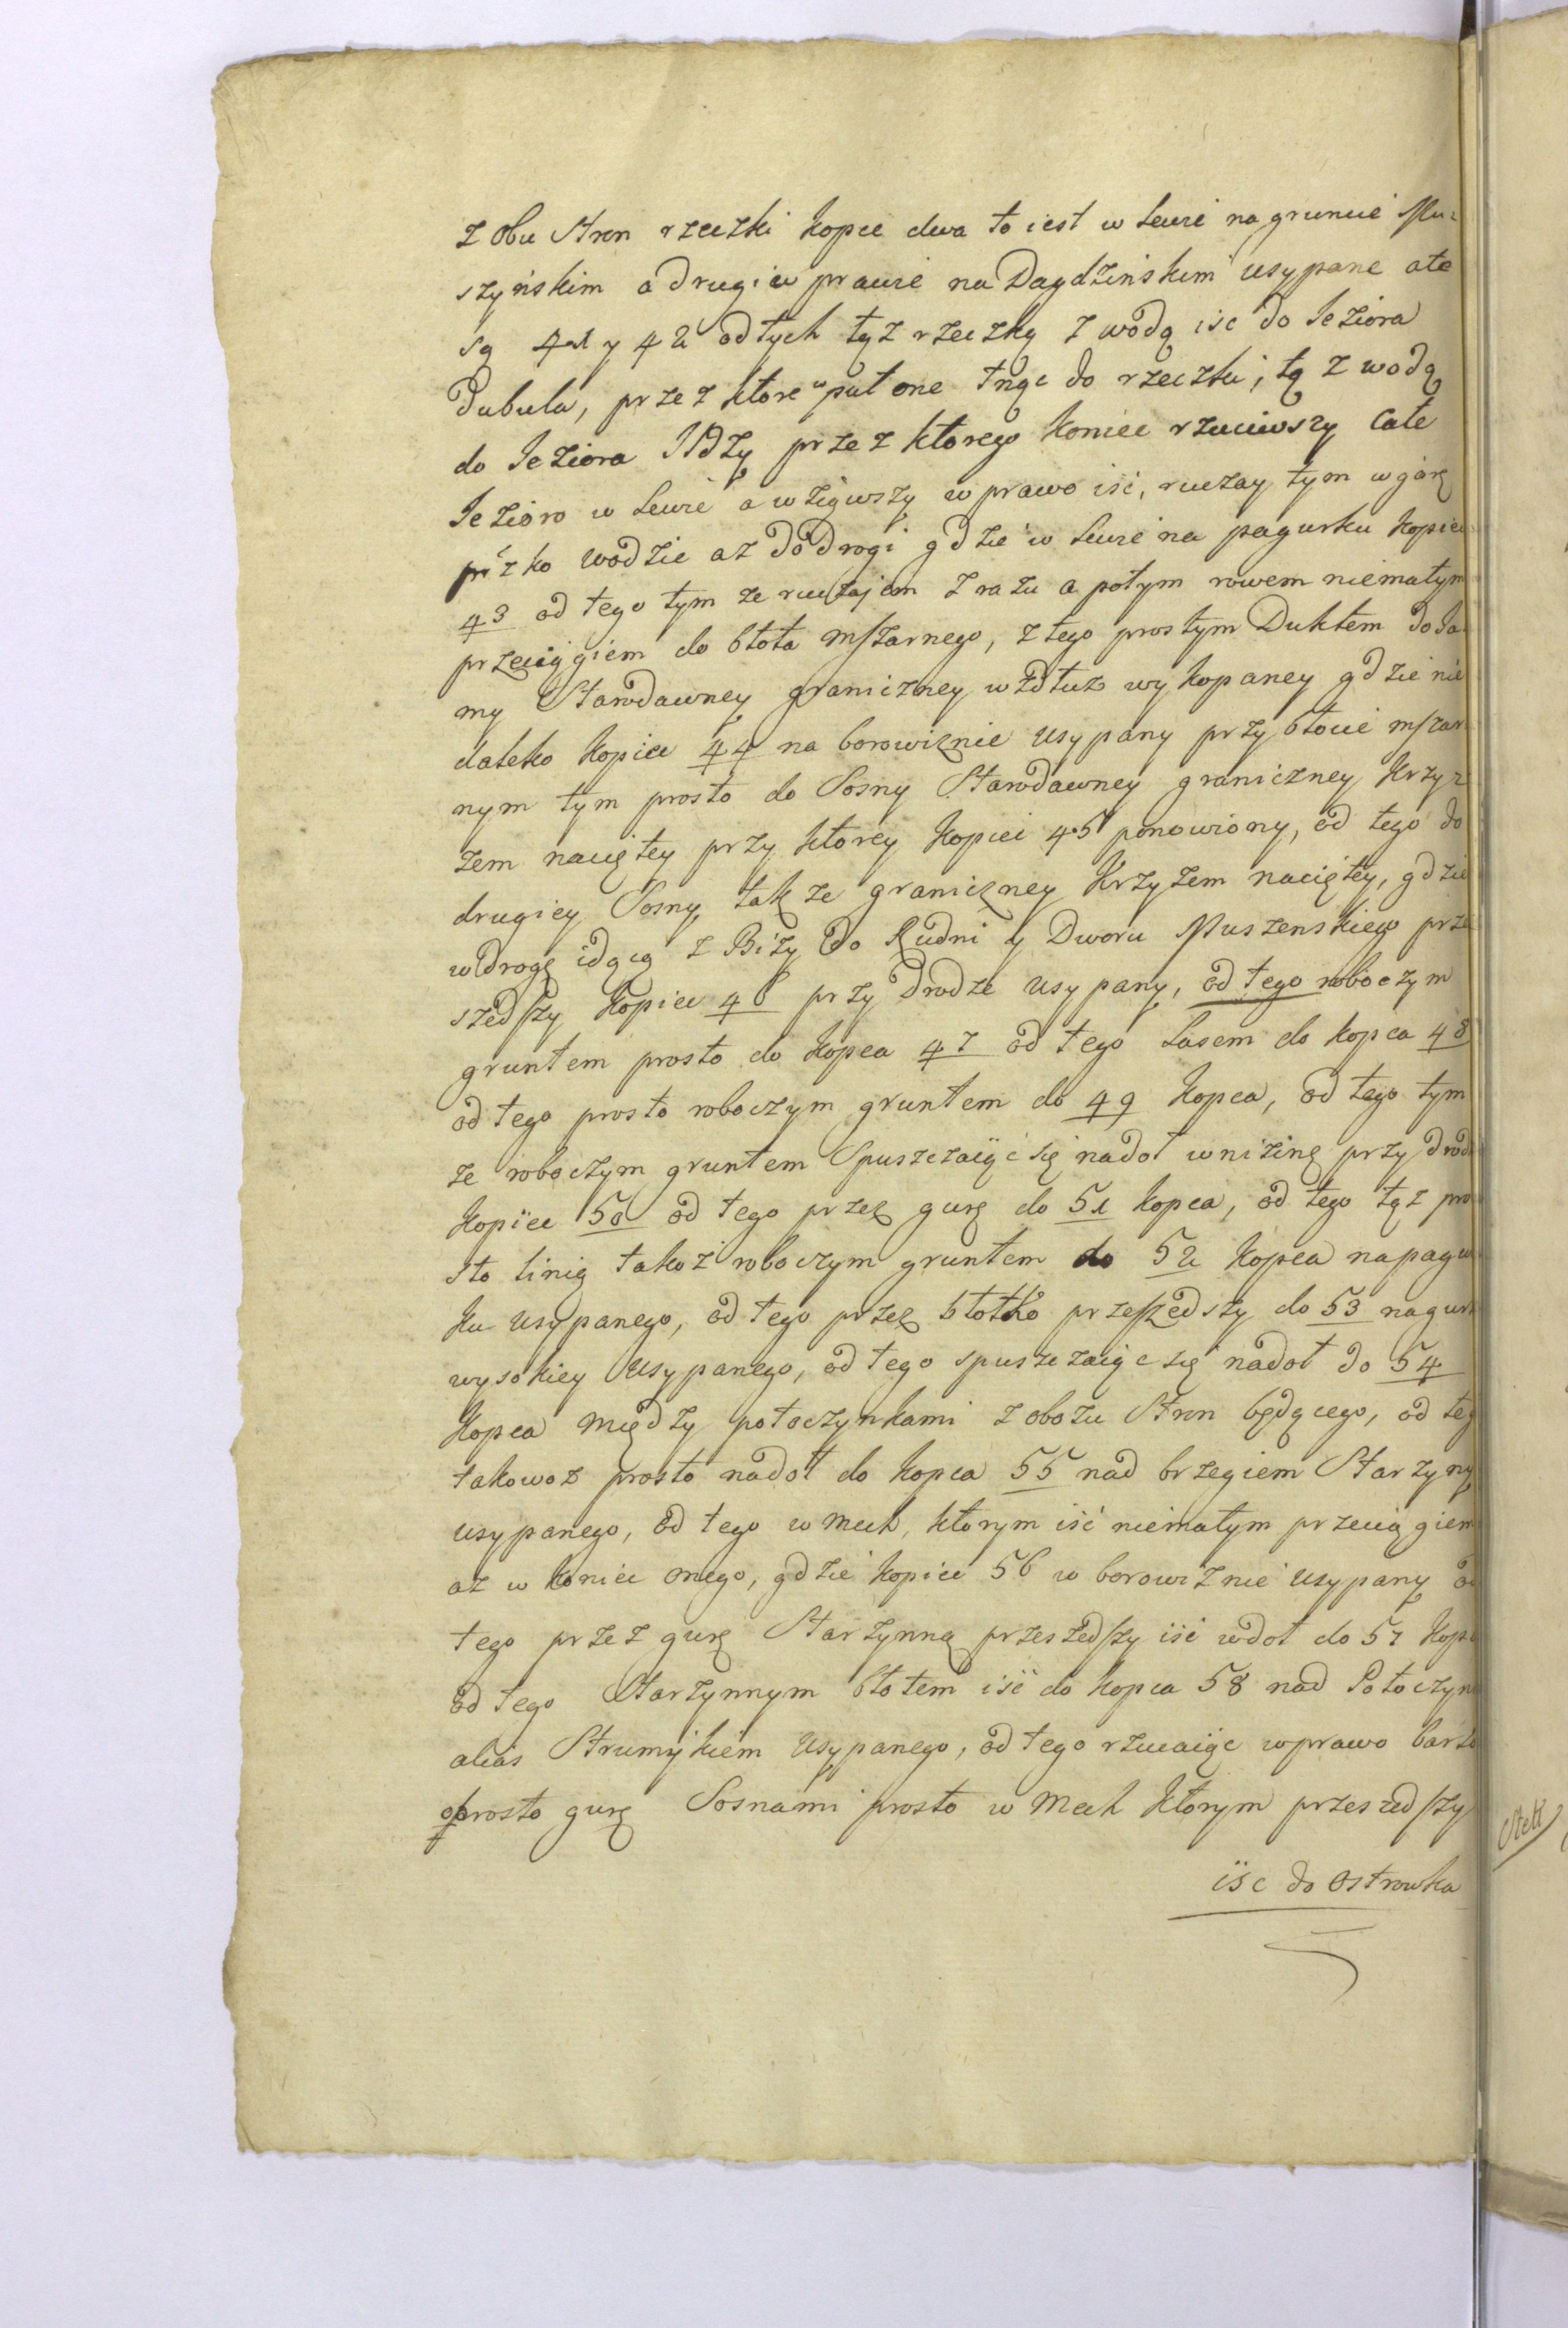 z obu stron rzeczki kopce dwa to iest w lewie na gruncie Mu-
szyńskim a drugi w prawie na Dagdzińskim usypane ate
są 41 y 42 od tych tąż rzeczką z wodą isc do Jeziora
Dubula, przez ktore w puł one tnąc do rzeczki, tą z wodą
do Jeziora Udży przez ktorego koniec rzuciwszy całe
Jezioro w lewie a wziąwszy w prawo iść, ruczay tym w górę
pizko wodzie az do drogi gdzie w lewie na pagurku kopiec
43 od tego tym ze ruczajem zrazu a potym rowem niemałym
przeciągiem do błota mszarnego, z tego prostym Duktem do Ja
my Starodawney graniczney wzdłuż wykopaney gdzie nie
daleko kopiec 44 na borowiznie usypany przy błocie mszar
nym tym prosto do Sosny Starodawney graniczney krzyż
zem naciętey przy ktorey kopiec 45 ponowiony, od tego do
drugiey Sosny także graniczney krzyżem naciętey, gdzie
w drogę idącą z Biży do Rudni y Dworu Muszenskiego prze
szedszy kopiec 46 przy drodze usypany, od tego roboczym
gruntem prosto do kopca 47 od tego Lasem do kopca 48
od tego prosto roboczym gruntem do 49 kopca, od tego tym
ze roboczym gruntem spuszczaiąc się nadoł w nizinę przy drod
kopiec 50 od tego przez gurę do 51 kopca, od tego tąż pro
sto linią takoż roboczym gruntem do 52 kopca na pagur
ku usypanego, od tego przez błotko przeszedszy do 53 na gurz
wysokiey usypanego, od tego spuszczaiąc się nadoł do 54
kopca między potoczynkami z obozu stron będącego, od teg
takowoż prosto nadoł do kopca 55 nad brzegiem Starzyny
usypanego, od tego w mech, ktorym iść niemałym przeciągiem
az w koniec onego, gdzie kopiec 56 w borowiznie usypany o
tego przez gurę Starzynną przeszedszy iść w doł do 57 kop
od tego Starzynnym błotem iść do kopca 58 nad Potoczyn
alias Strumykiem usypanego, od tego rzucaiąc w prawo barzo
oprosto gurę Sosnami prosto w mech ktorym przeszedszy
iśc do ostrowka